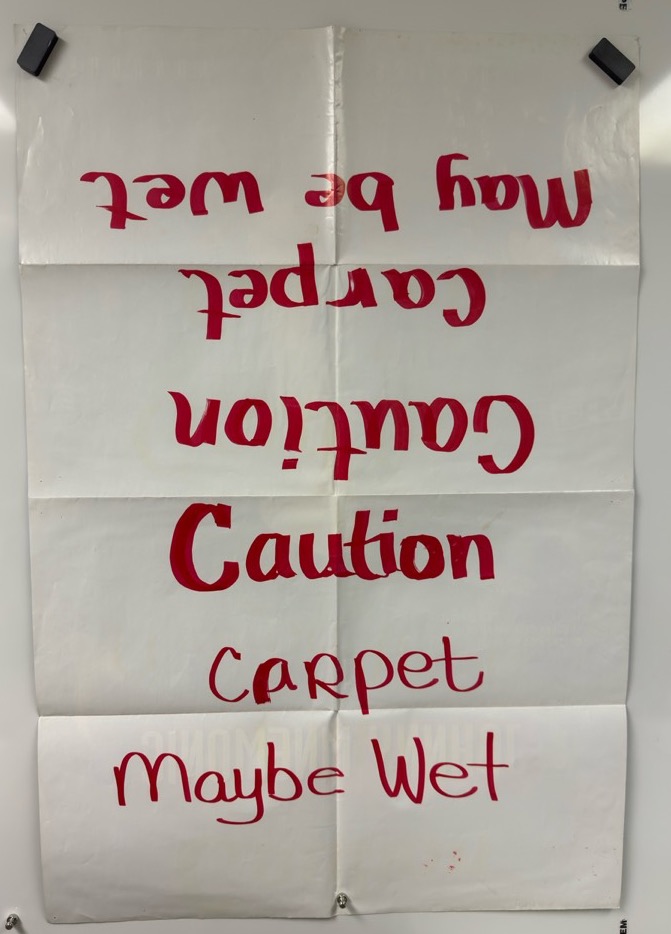 May be wet
Carpet
Caution
Caution
Carpet
Maybe Wet